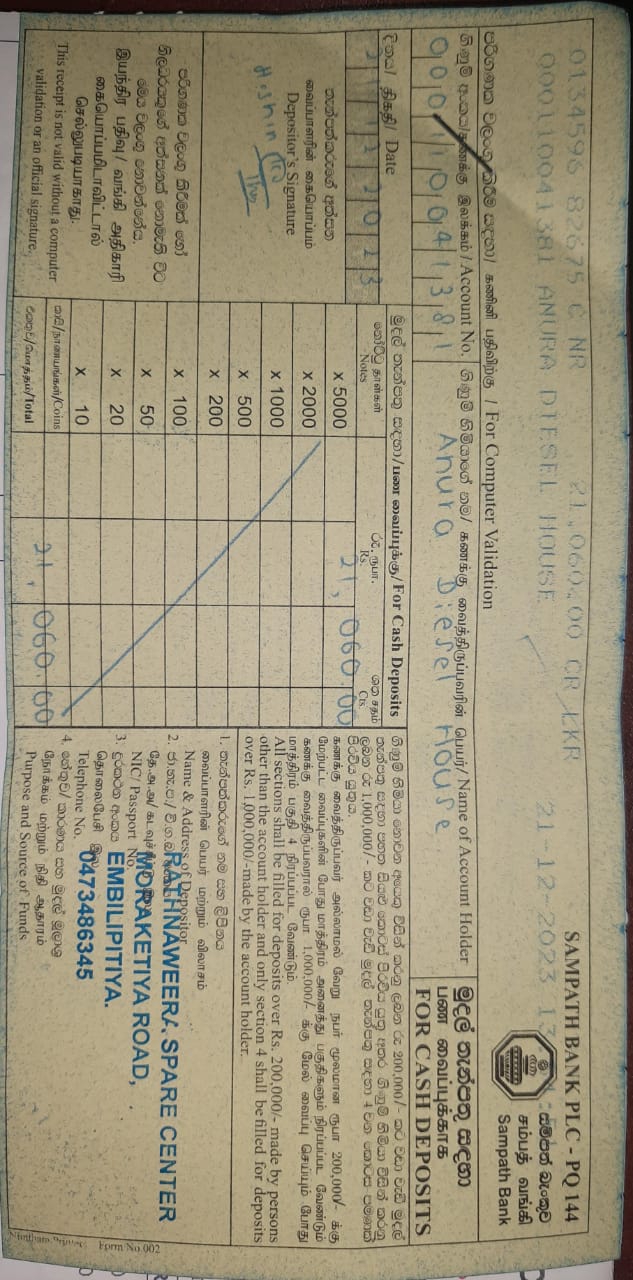 SAMPATH BANK PLC - PQ 144
0134596 82675 C NR 21,060.00 CR LKR 21-12-2023 13
000110041381 ANURA DIESEL HOUSE
සම්පත් බැංකුව
சம்பத் வங்கி
Sampath Bank
පරිගණක වලංගු කිරීම සඳහා / கணினி பதிவிற்கு / For Computer Validation
ගිණුම් අංකය/கணக்கு இலக்கம் / Account No.
ගිණුම් හිමියාගේ නම/ கணக்கு வைத்திருப்பவரின் பெயர்/ Name of Account Holder
0001 10041381
Anura Diesel House
මුදල් තැන්පතු සඳහා
பண வைப்புக்காக
FOR CASH DEPOSITS
දිනය/ திகதி/ Date
21 12 2023
මුදල් තැන්පතු සඳහා/பண வைப்புக்கு/ For Cash Deposits
නෝට්ටු தாள்கள்
Notes
රු. ரூபா.
Rs.
ශත சதம்
Cts.
x 5000 21, 060 00
x 2000
x 1000
x 500
x 200
x 100
x 50
x 20
x 10
කාසි/நாணயங்கள்/Coins
එකතුව/மொத்தம்/Total 21, 060.00
තැන්පත්කරුගේ අත්සන
வைப்பாளரின் கையொப்பம்
Depositor's Signature
පරිගණක වලංගු කිරීමක් හෝ
නිලධරයකුගේ අත්සනක් නොමැති විට
මෙය වලංගු නොවන්නේය.
இயந்திர பதிவு/ வங்கி அதிகாரி
கையொப்பமிடாவிட்டால்
செல்லுபடியாகாது.
This receipt is not valid without a computer
validation or an official signature.
கணக்கு வைத்திருப்பவர் அல்லாமல் வேறு நபர் மூலமான ரூபா 200,000/- க்கு
மேற்பட்ட வைப்புகளின் போது மாத்திரம் அனைத்து பகுதிகளும் நிரப்பப்பட வேண்டும்
கணக்கு வைத்திருப்பவரால் ரூபா 1,000,000/- க்கு மேல் வைப்பு செய்யும் போது
மாத்திரம் பகுதி 4 நிரப்பப்பட வேண்டும்
All sections shall be filled for deposits over Rs. 200,000/- made by persons
other than the account holder and only section 4 shall be filled for deposits
over Rs. 1,000,000/-made by the account holder.
1. තැන්පත්කරුගේ නම සහ ලිපිනය
வைப்பாளரின் பெயர் மற்றும் விலாசம்
Name & Address of Depositor
RATHNAWEERA SPARE CENTER
MORAKETIYA ROAD,
EMBILIPITIYA.
0473486345
NIC/ Passport No.
3. දුරකථන අංකය
தொலைபேசி இல
Telephone No.
4. හේතුව/ කාරණය සහ මුදල් මූලාශ්‍ර
நோக்கம் மற்றும் நிதி ஆதாரம்
Purpose and Source of Funds
Form No.002